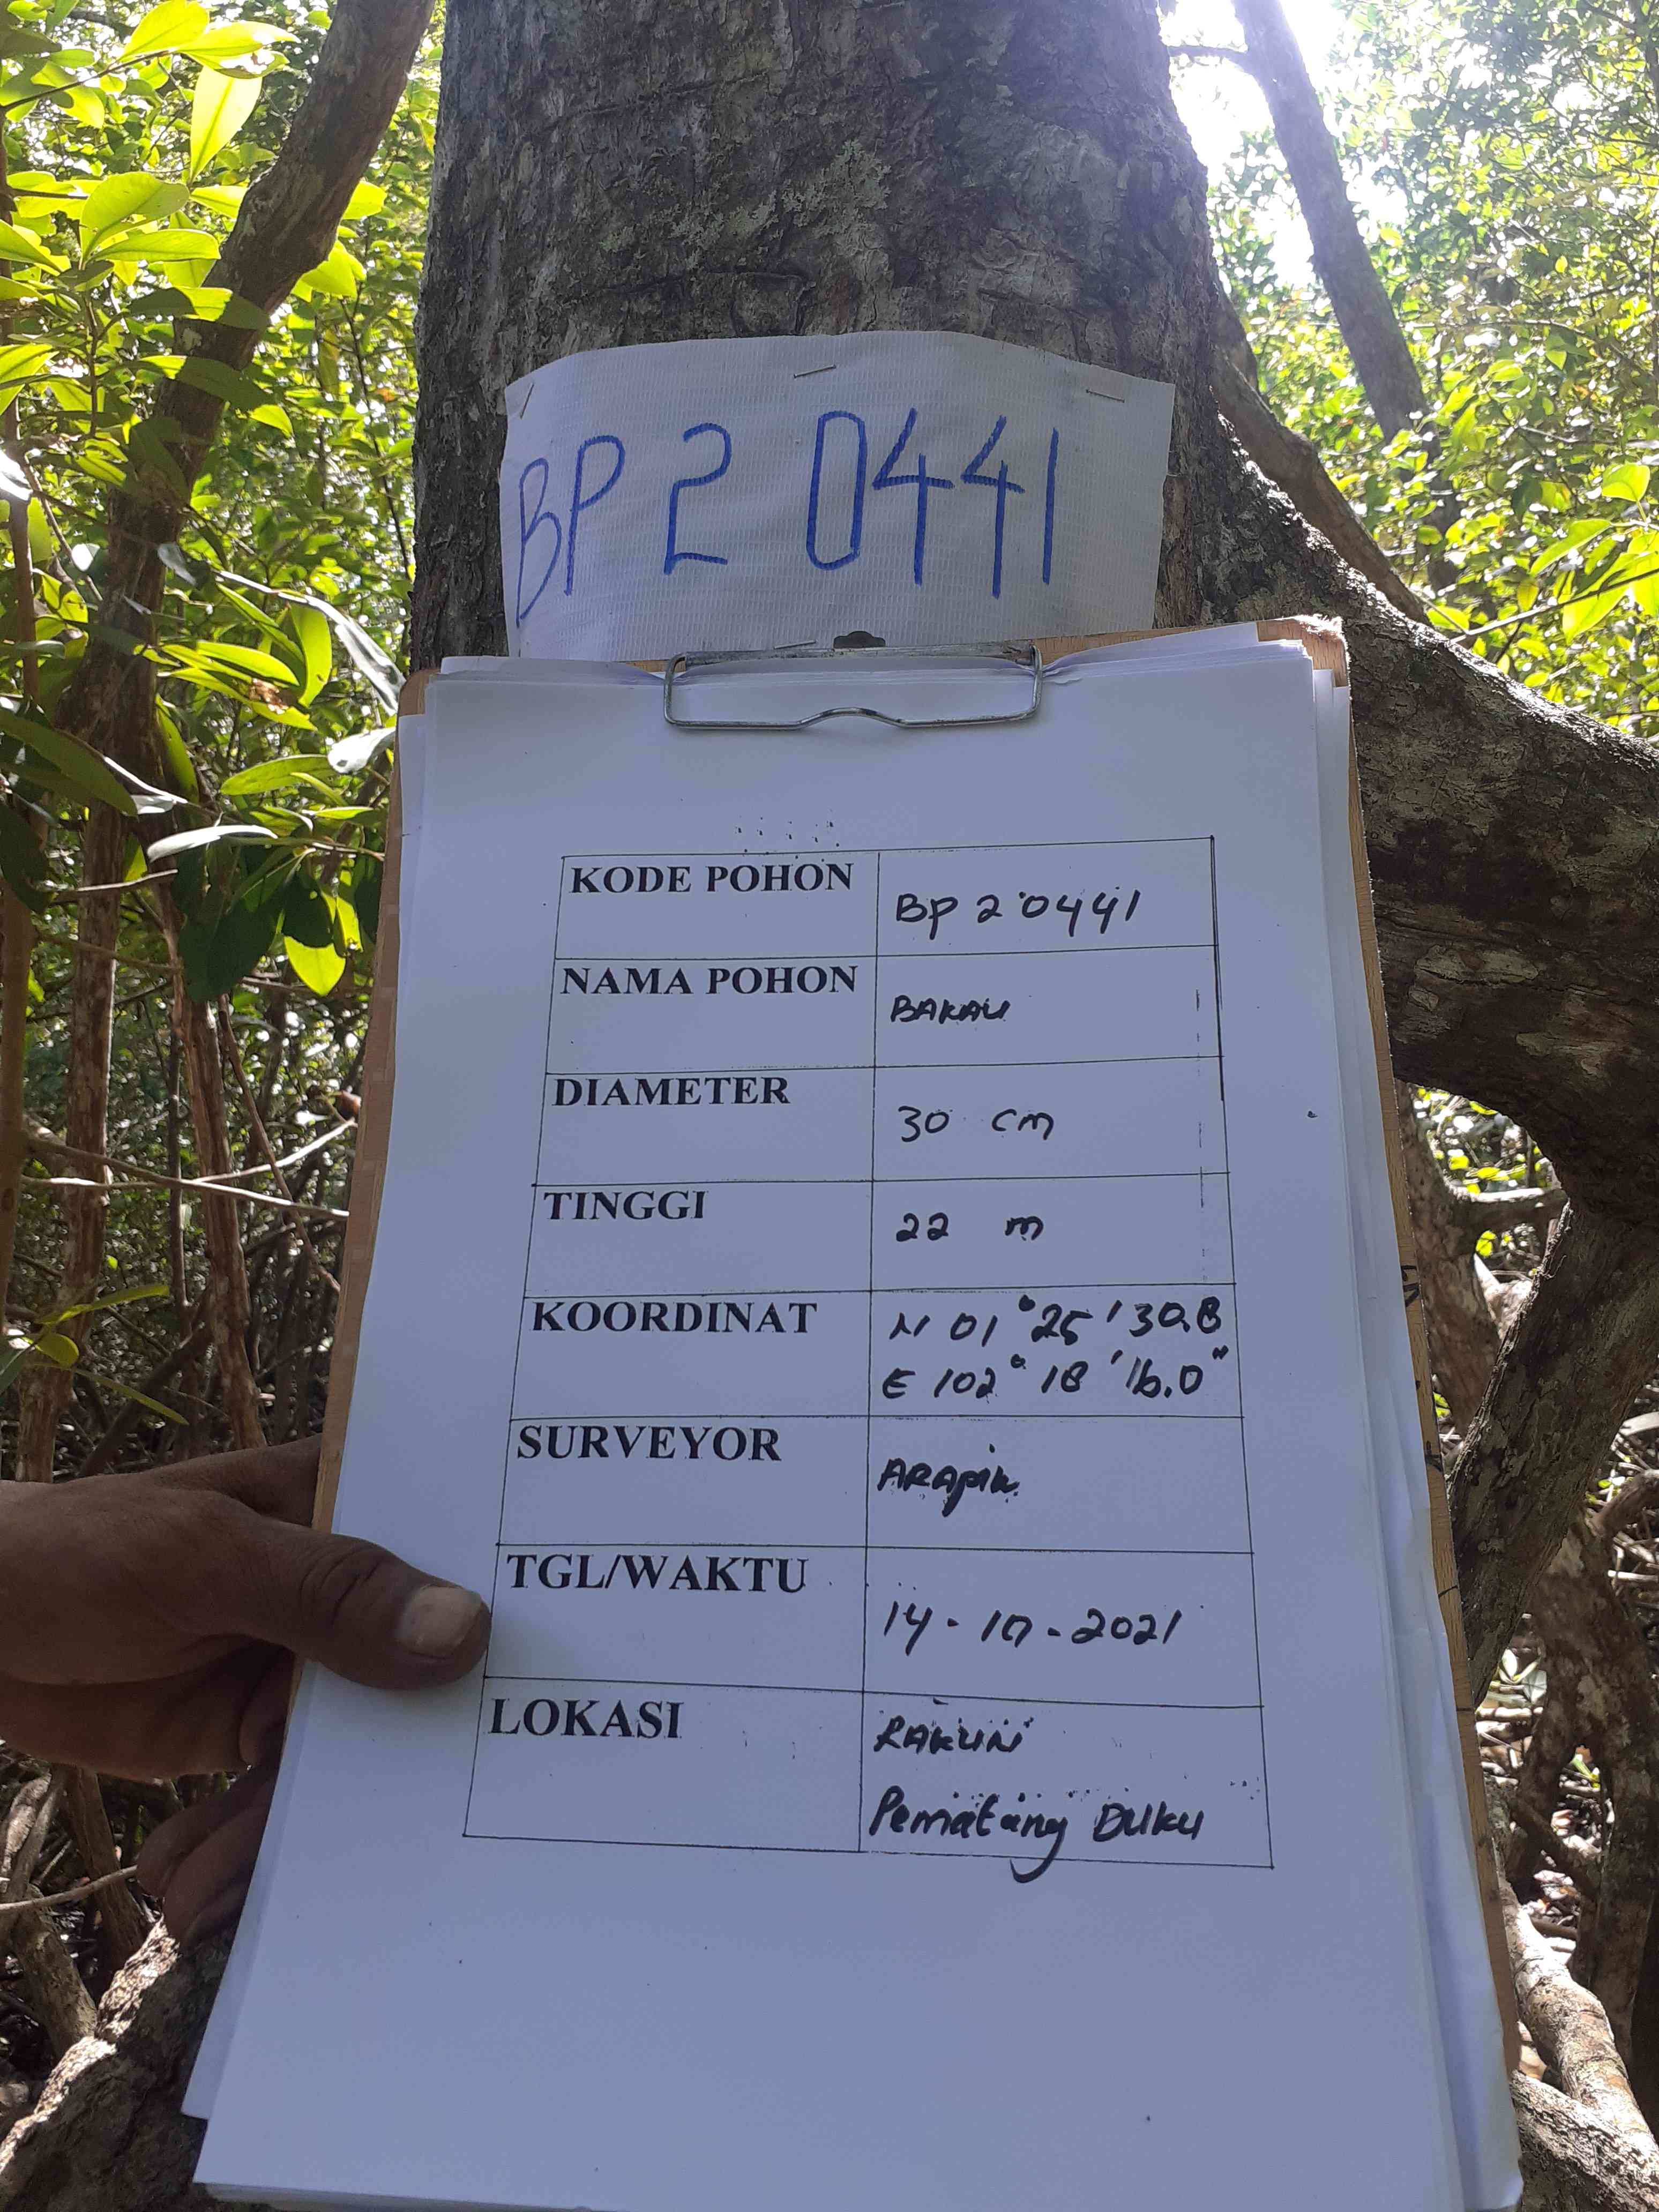 BP 2 0441
KODE POHON
BP 2 0441
NAMA POHON
BAKAU
DIAMETER
30 cm
TINGGI
22 m
KOORDINAT
N 01° 25' 30.8
E 102° 18' 16.0"
SURVEYOR
ARAPIK
TGL/WAKTU
14-10-2021
LOKASI
RAKUN
Pematang Duku